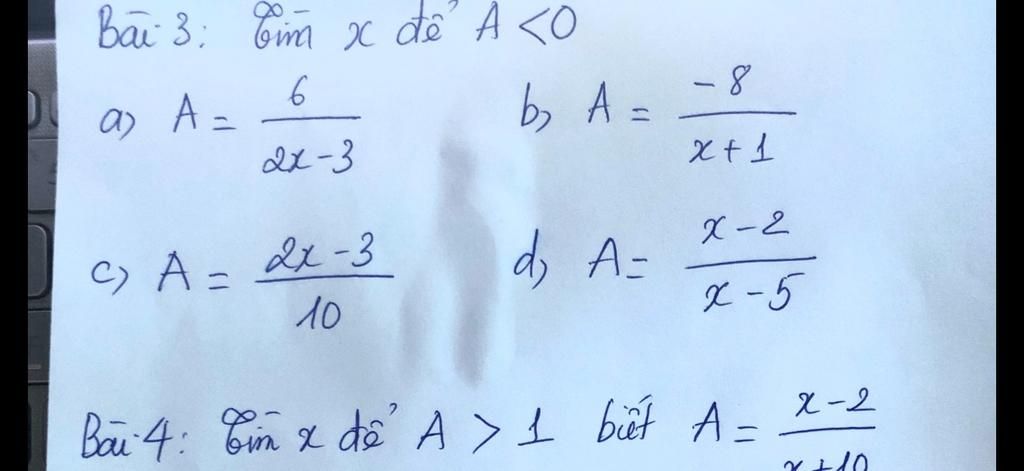 Bài 3: Tìm x để A < 0
a) A = 6 / (2x-3)   b) A = -8 / (x+1)
c) A = (2x-3) / 10   d) A = (x-2) / (x-5)
Bài 4: Tìm x để A > 1 biết A = (x-2) / (x+10)